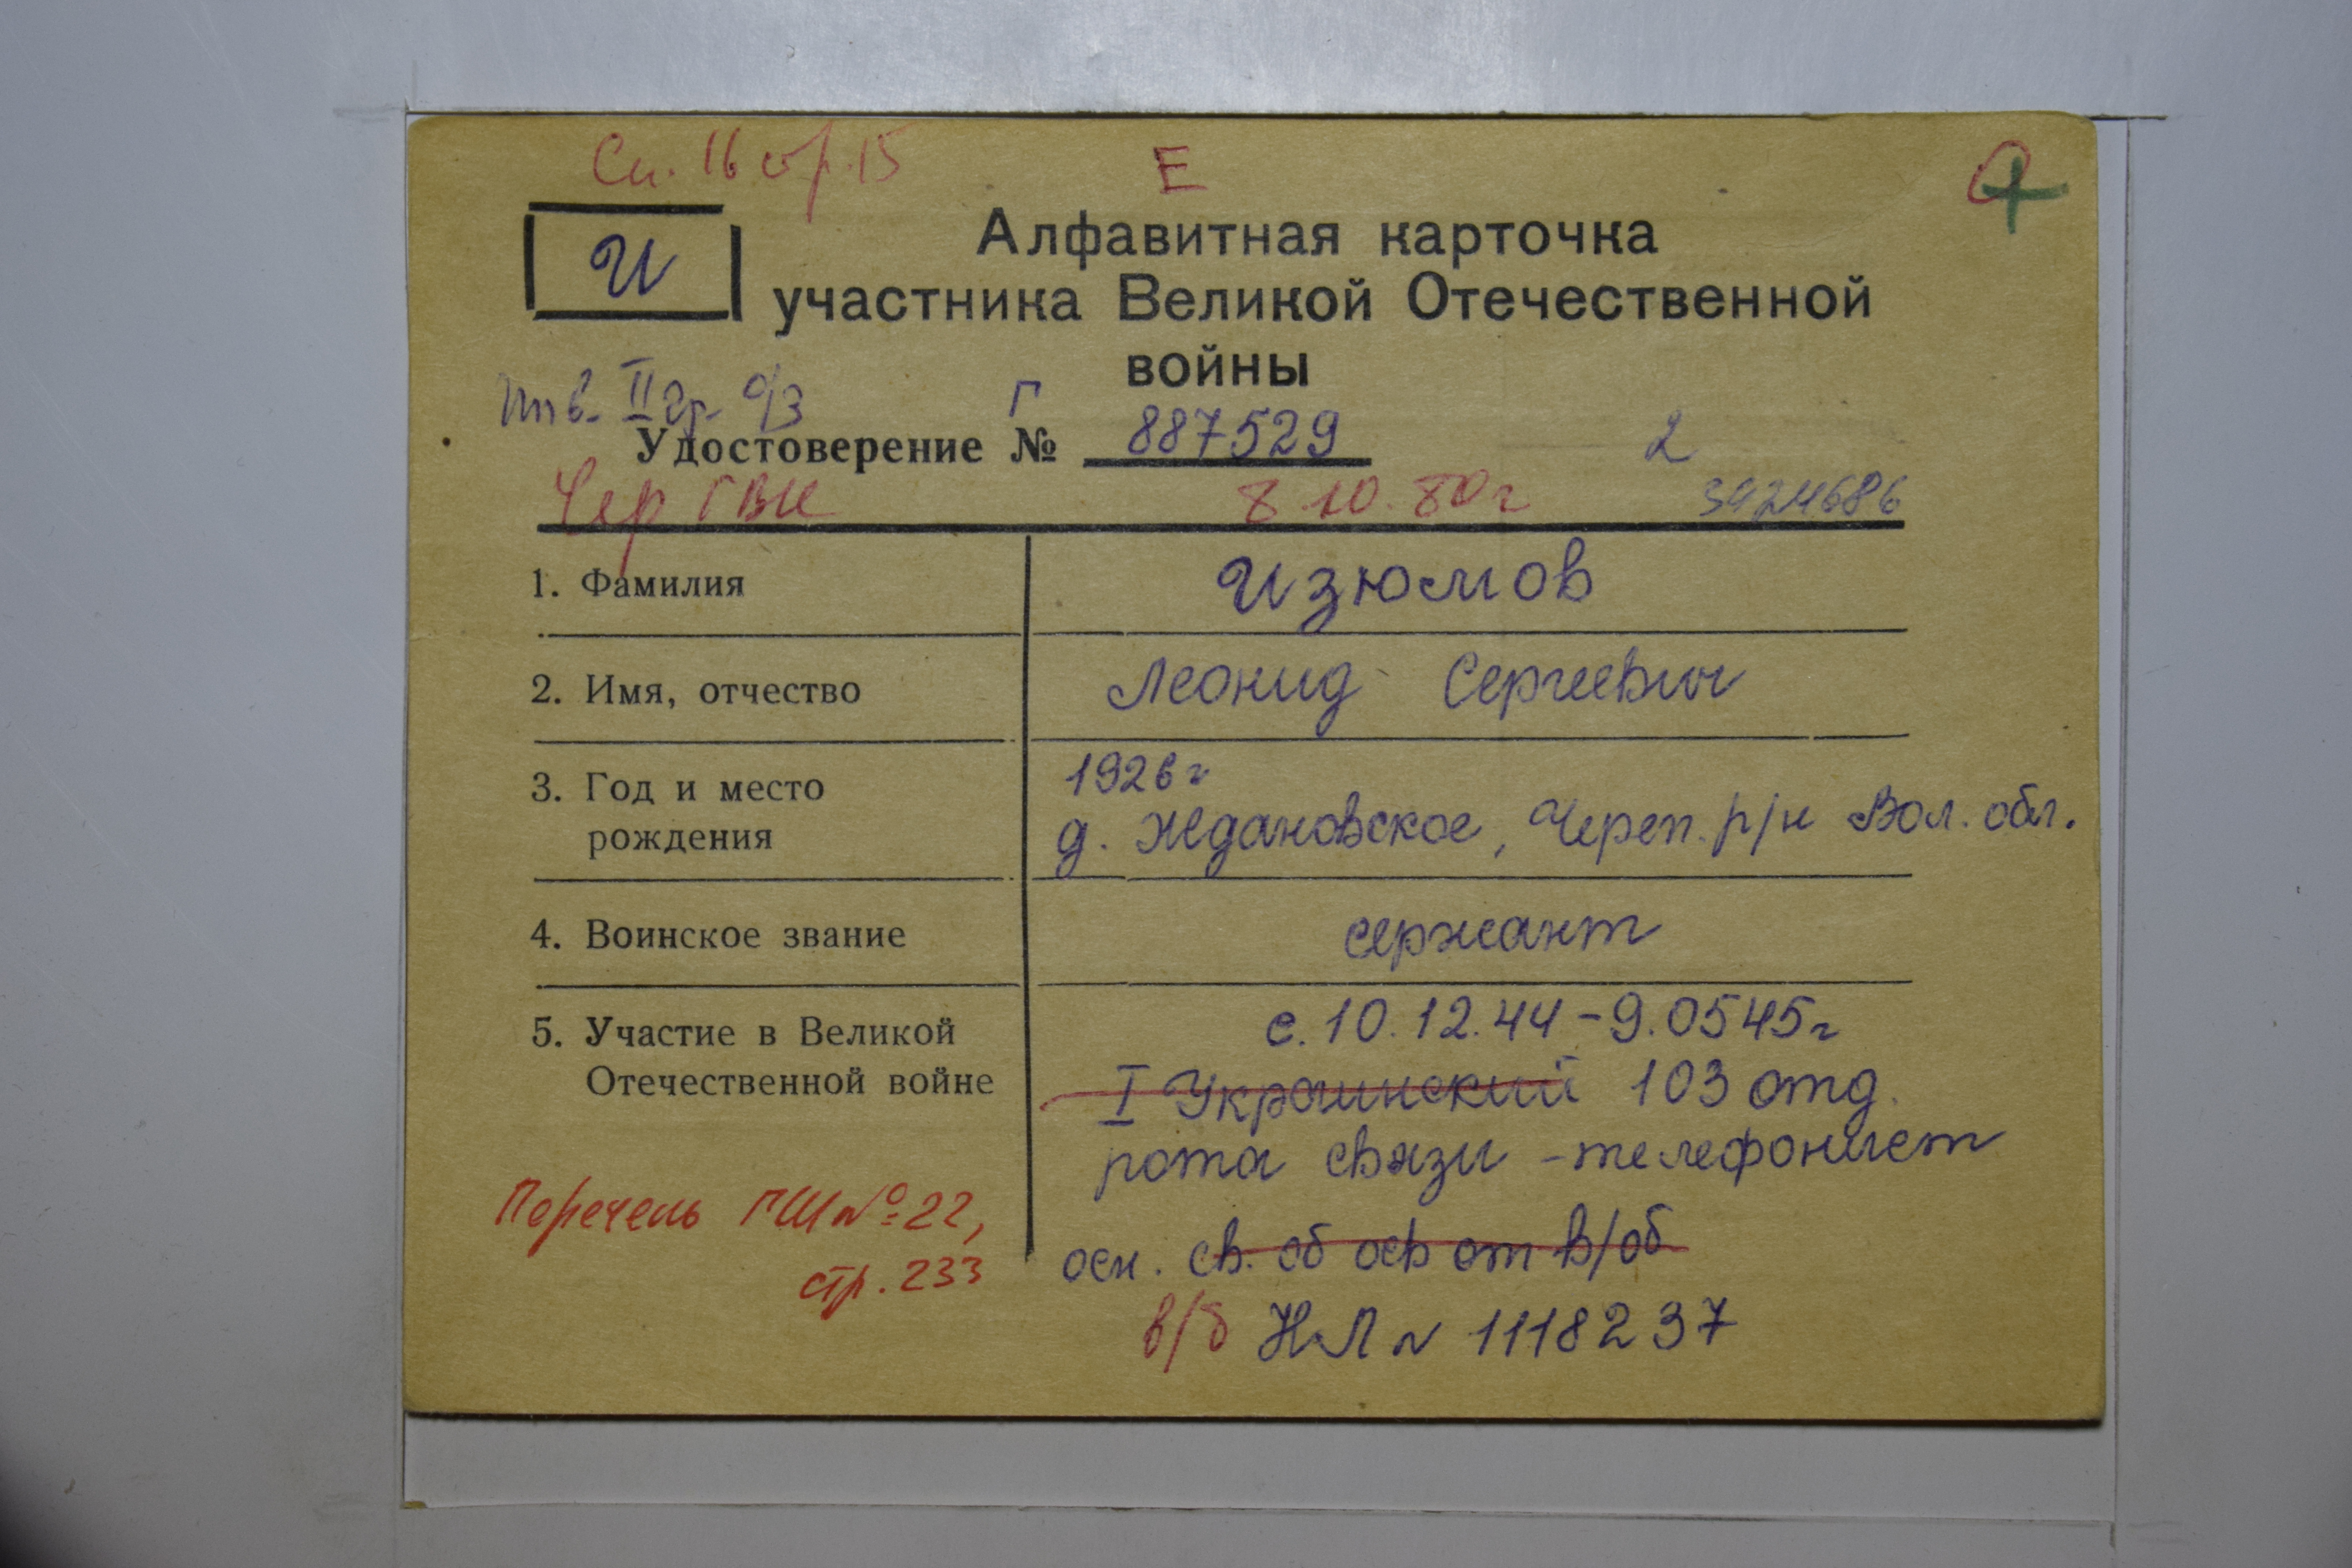 Сп. 16 стр. 15
Е
И
Алфавитная карточка
участника Великой Отечественной
войны
Инв. II гр. о/з
Г
Удостоверение № 887529
2
Чер ГВК 8.10.80г 3924686
1. Фамилия Изюмов
2. Имя, отчество Леонид Сергеевич
3. Год и место 1926г
рождения д. Ждановское, Череп. р/н Вол. обл.
4. Воинское звание сержант
5. Участие в Великой с. 10.12.44-9.0545г
Отечественной войне I Украинский 103 отд.
рота связи - телефонист
Перечень ГШ №22,
стр. 233
осн. св. об осв от в/об
в/б НЛ № 1118237